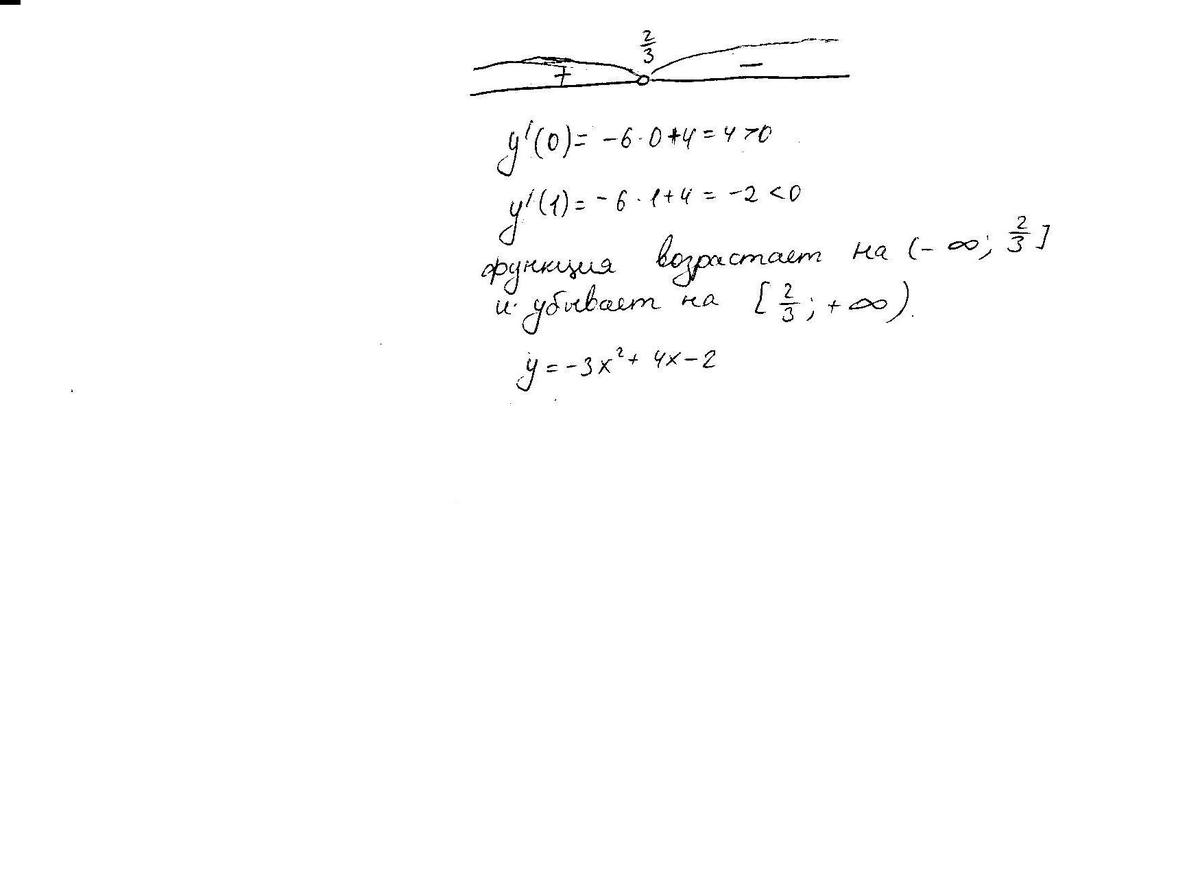 2/3
+ −
y'(0)= -6·0+4=4>0
y'(1)= -6·1+4=-2<0
функция возрастает на (-∞; 2/3]
и убывает на [2/3; +∞).
y=-3x²+4x-2